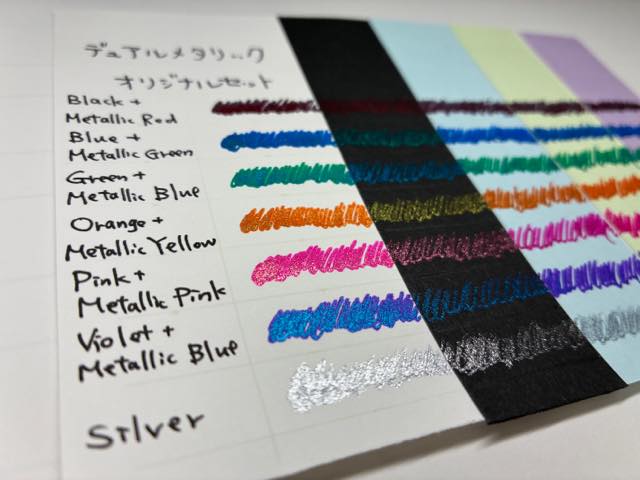 デュアルメタリック
オリジナルセット
Black +
Metallic Red
Blue +
Metallic Green
Green +
Metallic Blue
Orange +
Metallic Yellow
Pink +
Metallic Pink
Violet +
Metallic Blue
Silver